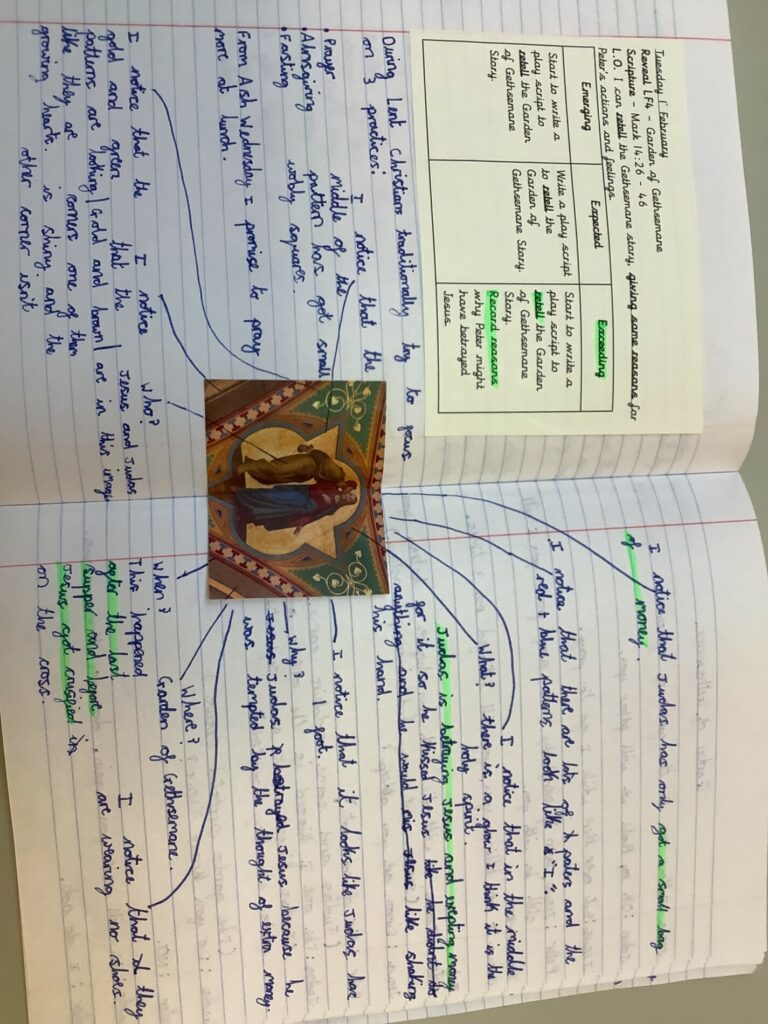 Tuesday 1 February
Reveal LF4 - Garden of Gethsemane
Scripture - Mark 14:26 - 46
L.O. I can retell the Gethsemane story, giving some reasons for
Peter's actions and feelings.
Emerging
Expected
Exceeding
Start to write a
play script to
retell the Garden
of Gethsemane
Story.
Write a play script
to retell the
Garden of
Gethsemane Story.
Start to write a
play script to
retell the Garden
of Gethsemane
Story.
Record reasons
why Peter might
have betrayed
Jesus.
During Lent Christians traditionally try to focus
on 3 practices:
•Prayer
•Almsgiving
•Fasting
I notice that the
middle of the
pattern has got small
wobly squares.
From Ash Wednesday I promise to pray
more at lunch.
I notice that the
gold and green
patterns are looking
like they are
growing hearts.
I notice
that the
Gold and brown
corners one of them
is shiny and the
other corner isn't
Who?
Jesus and Judas
are in this image
I notice that Judas has only got a small bag
of money.
I notice that there are lots of paters and the
red + blue patterns look like "I".
I notice that in the middle
there is a glow I think it is the
holy spirit.
What?
Judas is betraying Jesus andexepting money
for it so he kissed Jesus like he dident do
anything and he would kis Jesus like shaking
his hand.
I notice that it looks like Judas has
1 foot.
Why?
Jesus Judas betrayed Jesus because he
was tempted by the thought of extra money.
Where?
Garden of Gethsemane.
When?
This happened
after the last
supper and before
Jesus got crusified in
on the cross.
I notice that they
are wearing no shoes.